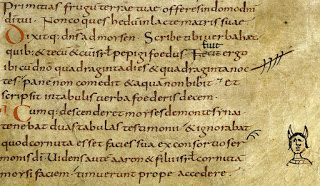 Primitias frugu terrae tuae offeres in domo dni
di tui. Non coques hedum in lacte matris suae
Dixitq; dns ad mosen. Scribe tibi verba haec
fuit
quib; et tecu et cu isrl pepigi foedus. Fecit ergo
ibi cu dno quadraginta dies & quadraginta noc
tes pane non comedit & aqua non bibit; et
scripsit in tabulis verba foederis decem
Cumq; descenderet moses de monte sinai
tenebat duas tabulas testimonii & ignorabat
quod cornuta esset facies sua ex consortio ser
monis di. Videns aute aaron & filii isrl cornuta
mosi faciem timuerunt prope accedere.